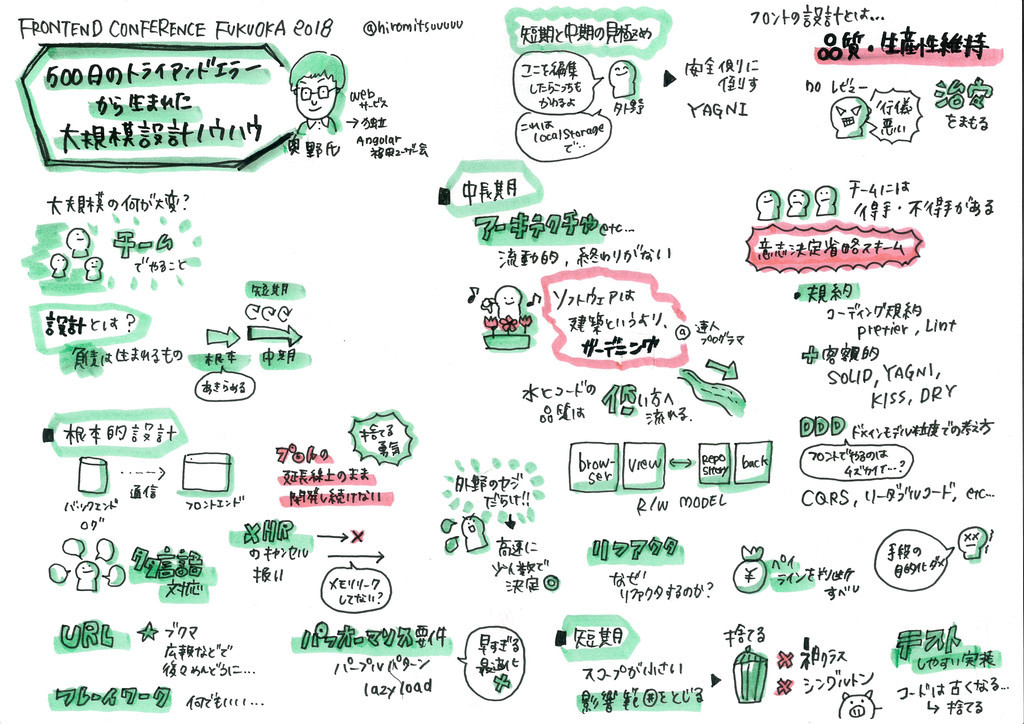 FRONTEND CONFERENCE FUKUOKA 2018
@hiromitsuuuuu
500日のトライアンドエラー
から生まれた
大規模設計ノウハウ
奥野氏
Web
サービス
→独立
Angular
大規模の何が大変?
チーム
でやること
設計とは?
負債は生まれるもの
短期
根本
中期
あきらめる
根本的設計
バックエンド
通信
フロントエンド
ログ
プロトの
延長線上のまま
開発し続けない
捨てる
勇気
多言語
対応
XHR
のキャンセル
扱い
メモリリーク
してない?
URL
★ ブクマ
広報などで
後々めんどうに...
フレームワーク
何でもいい...
パフォーマンス要件
パープルパターン
lazy load
早すぎる
最適化
短期と中期の見極め
ココを編集
したらこっちも
かわるよ
これは
localStorage
で...
外野
▶ 安全側に
倒す
YAGNI
中長期
アーキテクチャ etc...
流動的, 終わりがない
ソフトウェアは
建築というより、
ガーデニング
@達人
プログラマ
水とコードの
品質は
低い方へ
流れる.
外野のヤジ
だらけ!!
高速に
少人数で
決定◎
browser
view
Repository
back
R/W MODEL
リファクタ
なぜ
リファクタするのか?
¥
ペイ
ラインを
短期
スコープが小さい
影響範囲をとじる
▶ 捨てる
× 神クラス
× シングルトン
フロントの設計とは...
品質・生産性維持
no レビュー
行儀
悪い
治安
をまもる
チームには
得手・不得手がある
意志決定省略スキーム
・規約
コーディング規約
pretier, Lint
+ 客観的
SOLID, YAGNI,
KISS, DRY
DDD ドメインモデル粒度での考え方
フロントでやるのは
イズカイで...?
CQRS, リーダブルコード, etc...
手段の
目的化ダメ
テスト
しやすい実装
コードは古くなる...
↳ 捨てる